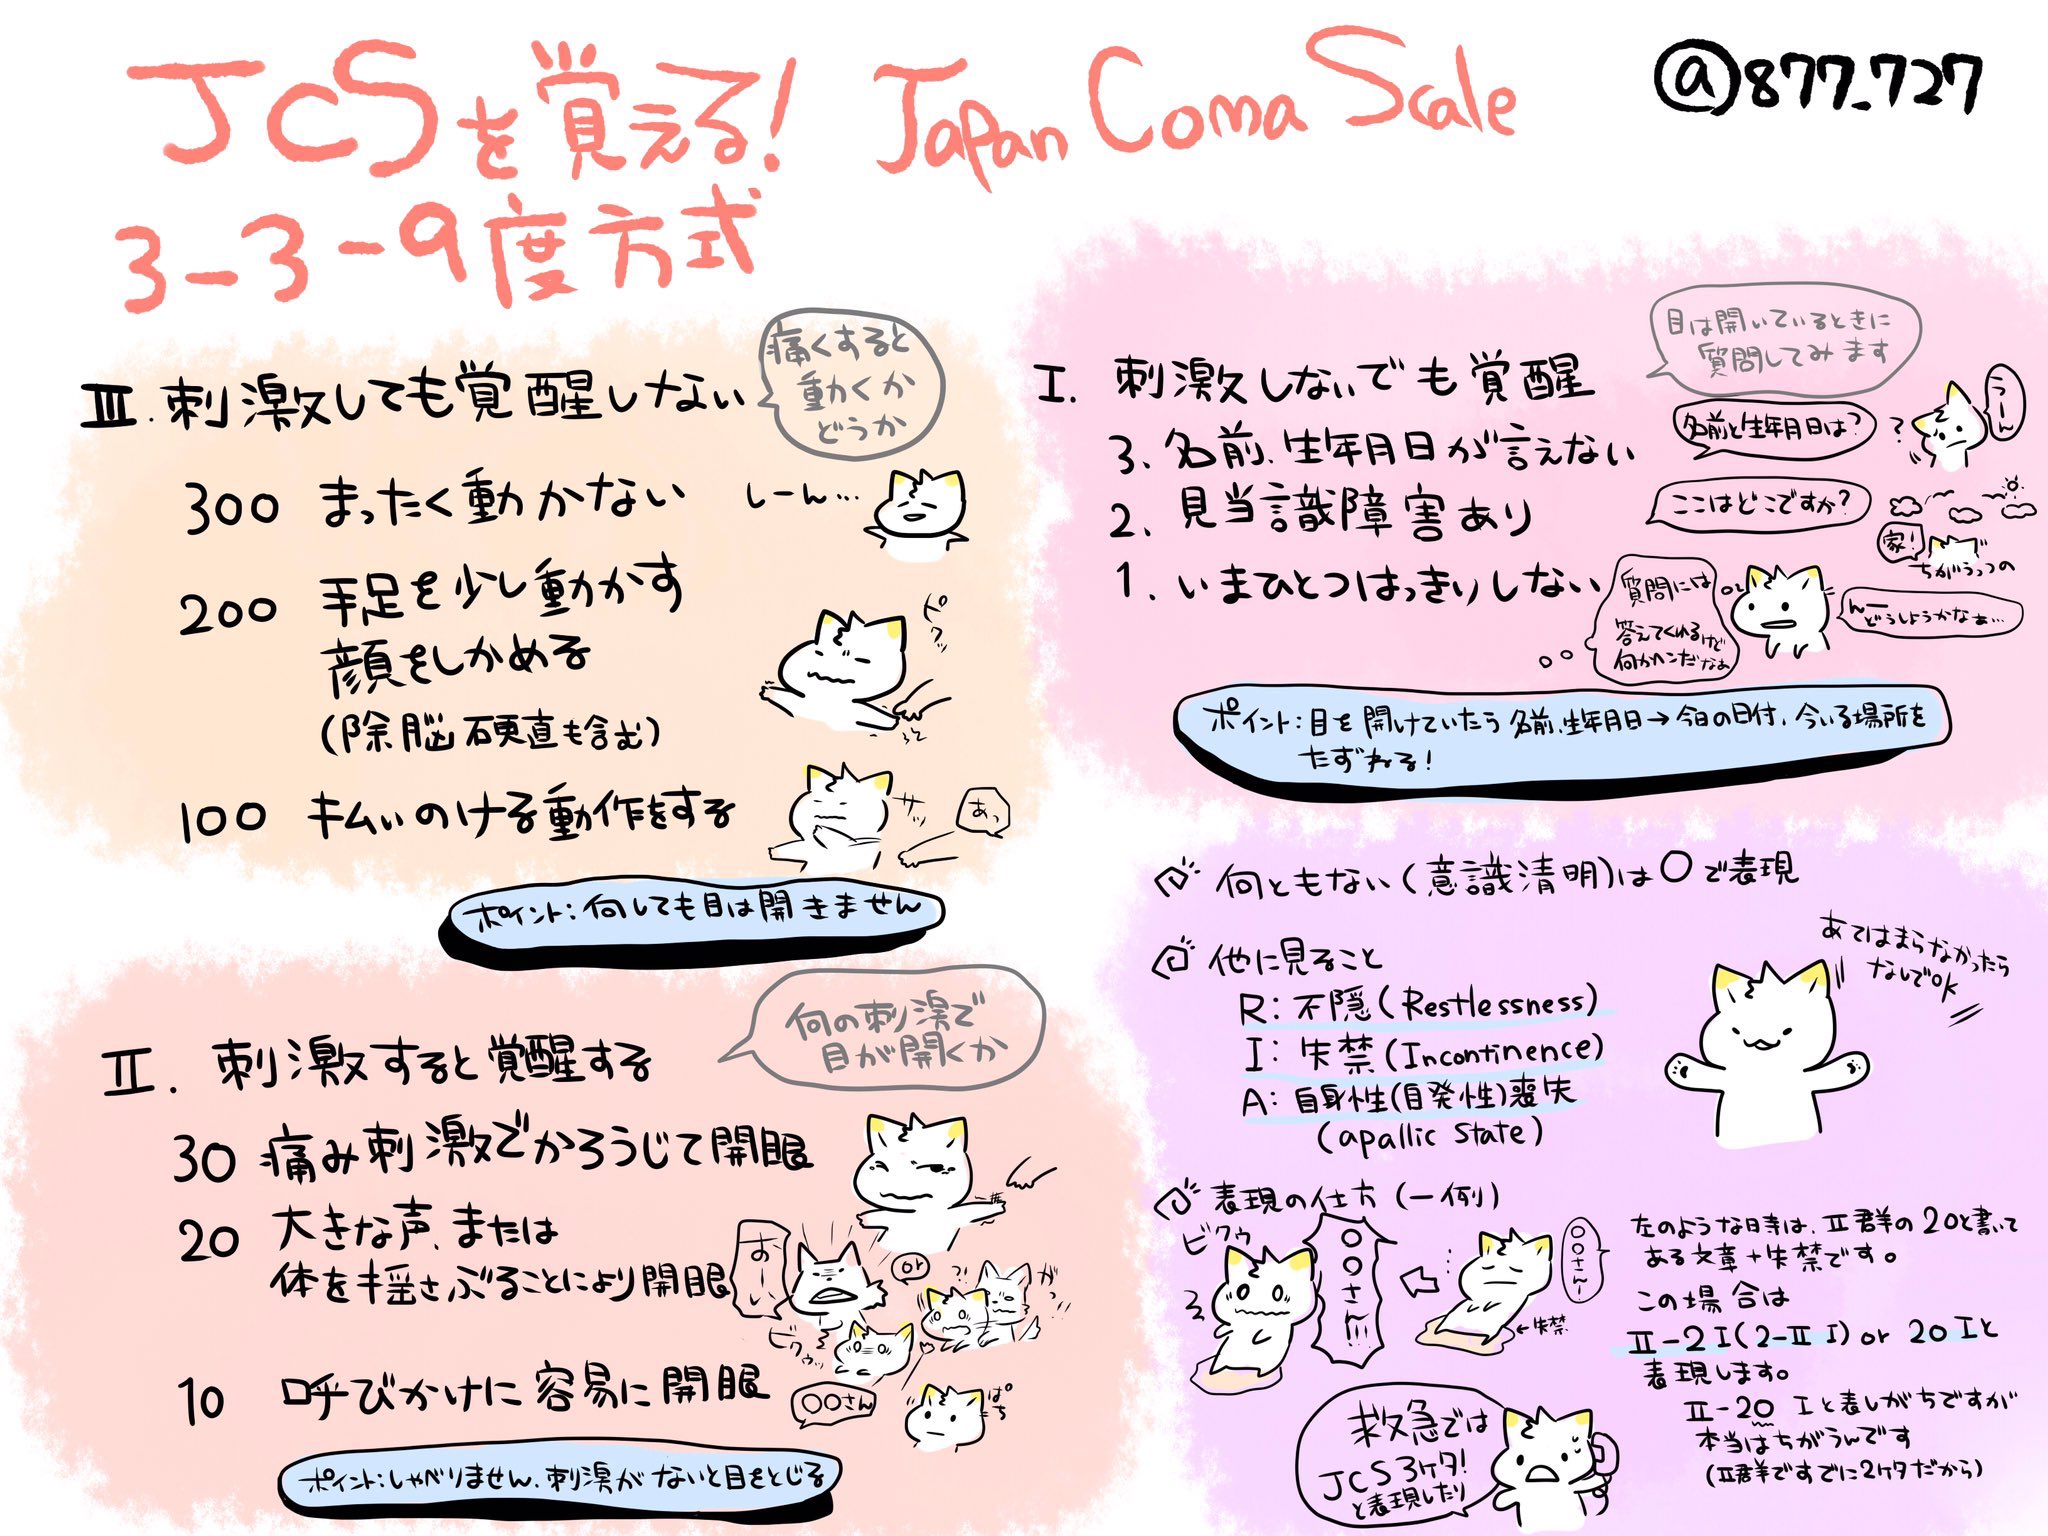 JCSを覚える! Japan Coma Scale
@877_727
3-3-9度方式
Ⅲ.刺激しても覚醒しない
痛くすると
動くか
どうか
300 まったく動かない
しーん…
200 手足を少し動かす
顔をしかめる
(除脳硬直も含む)
ペシッ
100 払いのける動作をする
サッ
あっ
ポイント:何しても目は開きません
Ⅱ.刺激すると覚醒する
何の刺激で
目が開くか
30 痛み刺激でかろうじて開眼
20 大きな声、または
体を揺さぶることにより開眼
おーい
or
ビクゥッ
10 呼びかけに容易に開眼
〇〇さん
ぱち
ポイント:しゃべりません.刺激がないと目をとじる
Ⅰ.刺激しないでも覚醒
目は開いているときに
質問してみます
3.名前、生年月日が言えない
名前と生年月日は?
?
うーん
2.見当識障害あり
ここはどこですか?
家!
ちがうっつの
1.いまひとつはっきりしない
質問には
答えてくれるけど
何かヘンだなぁ
んー
どうしようかなぁ…
ポイント:目を開けていたら名前、生年月日→今日の日付、今いる場所を
たずねる!
何ともない(意識清明)は0で表現
他に見ること
R:不隠(Restlessness)
I:失禁(Incontinence)
A:自身性(自発性)喪失
(apallic State)
あてはまらなかったら
なしでOK
表現の仕方(一例)
ビクゥ
〇〇さん!!!
〇〇さんー
←失禁
左のような時は、Ⅱ群の20と書いて
ある文章+失禁です。
この場合は
Ⅱ-2I(2-ⅡI) or 20Iと
表現します。
Ⅱ-20 Iと表しがちですが
本当はちがうんです
(Ⅱ群ですでに2ケタだから)
救急では
JCS3ケタ!
と表現したり